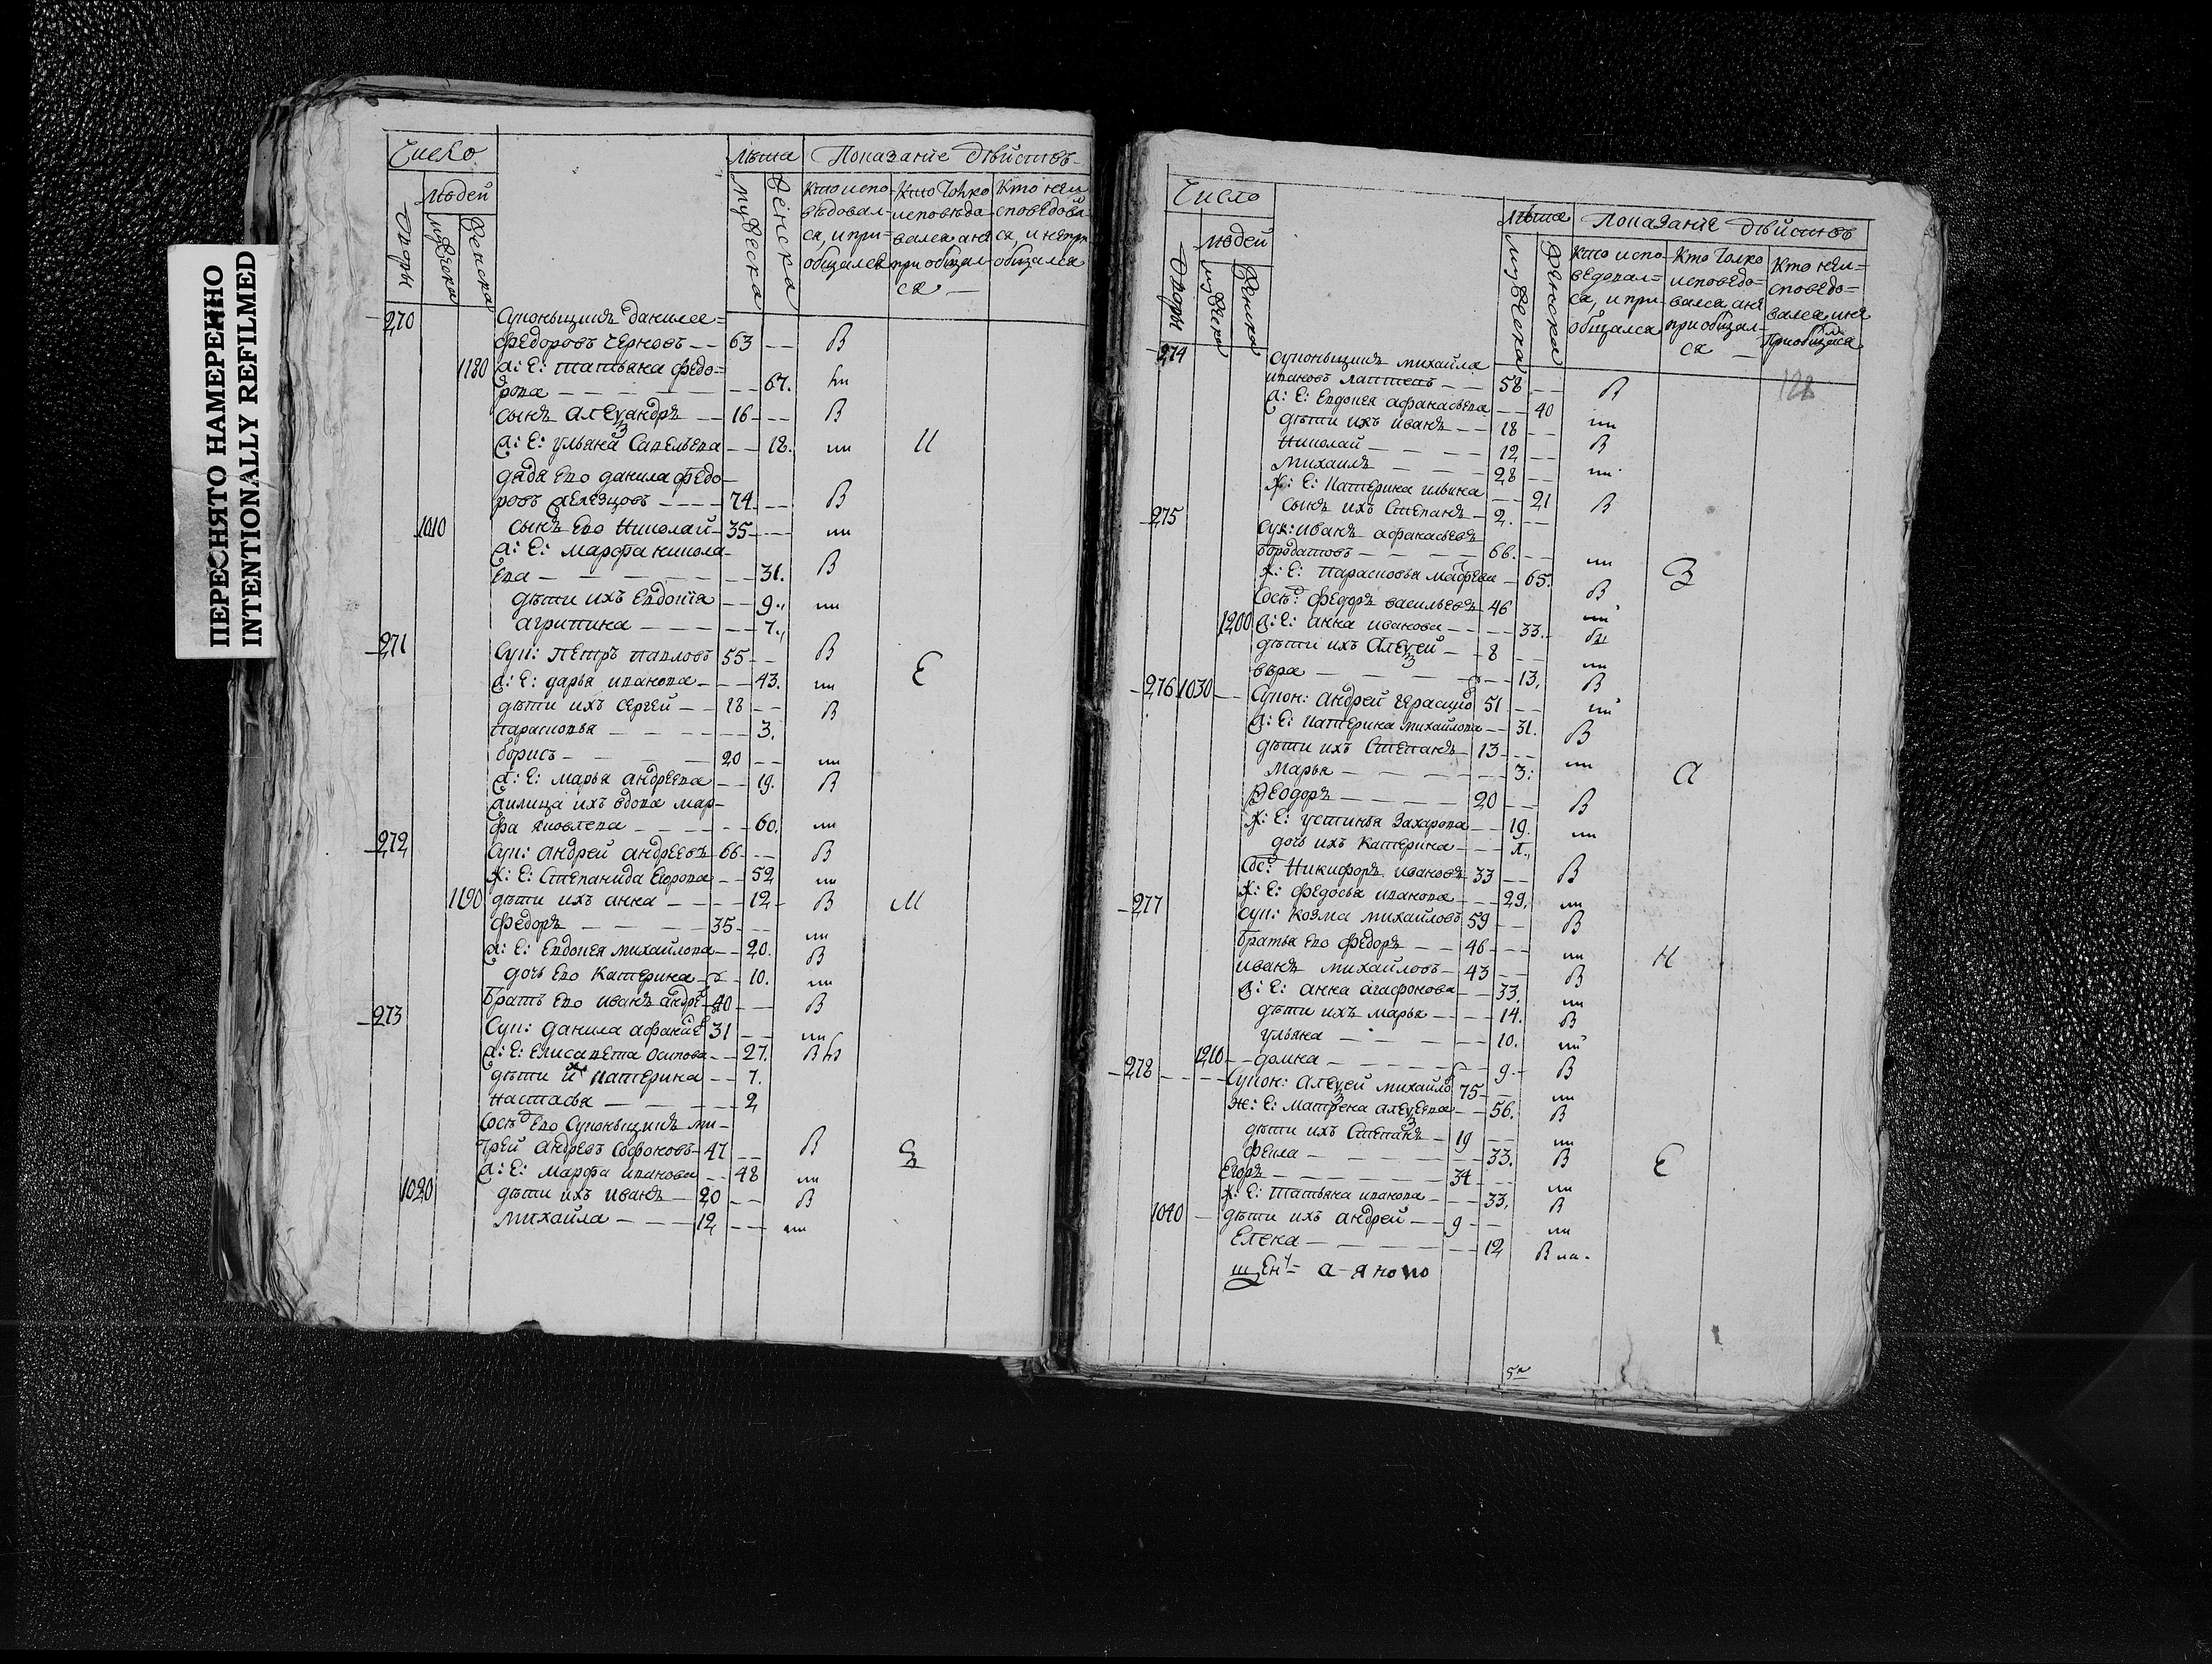 ПЕРЕСНЯТО НАМЕРЕННО
INTENTIONALLY REFILMED
Число
людей
Дворы
мужеска
женска
лѣта
мужеска
женска
Показанїе дѣйствъ
Кто испо-
вѣдовал-
ся, и при-
общался
Кто толко
исповѣдо-
вался а не
приобщал-
ся
Кто не и-
споведовал
ся, и не при
общался
270 Супоньщикъ данилее=
федоровъ черновъ 63 В
1180 ж: Е: татьяна федо=
рова 67.
сынъ алеѯандръ 16 В
ж: Е: ульяна Савельева 18. ни И
дядя Ево данила федо-
ровъ 74 В
1010 сынъ Ево Николай 35 ни
ж: Е: марфа никола-
Ева 31. В
дѣти ихъ Евдокїя 9 ни
агрипина 7
271 Суп: Петръ павловъ 55 В
ж: Е: дарья иванова 43. ни Е
дѣти ихъ сергей 18 В
парасковья 3.
борисъ 20 ни
ж: Е: марья андреева 19. В
жилица ихъ вдова мар-
фа яковлева 60. ни
272 Суп: андрей андреевъ 66 В
ж: Е: Степанида Егорова 52 ни
1190 дѣти ихъ анна 12 В М
федоръ 35 ни
ж: Е: Евдокея михайлова 20. В
дочь Ево Катерина 10. ни
братъ Ево иванъ андре 40 В
273 Суп: данила афанас 31 ни
ж: Е: Елисавета осипова 27. В
дѣти их Катерина 7.
настасья 2
Сосѣд Ево Супоньщикъ ми-
трей андреевъ 47 В
ж: Е: марфа иванова 48 ни
1020 дѣти ихъ иванъ 20 В
михайла 12 ни
Число
людей
Дворы
мужеска
женска
лѣта
мужеска
женска
Показанїе дѣйствъ
Кто испо-
ведовал=
ся, и при-
общался
Кто толко
исповедо=
вался, а не
приобщал-
ся
Кто не и=
споведо=
вался и не
приобщался
128
274 Супоньщикъ михайла
ивановъ лаптевъ 58 В
ж: Е: Евдокея афанасьева 40 ни
дѣти ихъ иванъ 18 В
Николай 12
Михаилъ 28 ни
ж: Е: Катерина ильина 21 В
сынъ ихъ Степанъ 2.
275 Суп: иванъ афанасьевъ
бородатовъ 66. ни
ж: Е: парасковья 65. В З
Сосѣд: федоръ васильевъ 46 ни
1200 ж: Е: анна иванова 33.
дѣти ихъ Алеѯей 8 ни
вѣра 13. В
276 1030 Супон: андрей герасимо 51 ни
ж: Е: Катерина михайлова 31. В
дѣти ихъ Степанъ 13 ни
марья 3: а
Ѳеодоръ 20 В
ж: Е: устинья Захарова 19. ни
дочь ихъ Катерина
Сос: Никифоръ ивановъ 33 В
ж: Е: федосья иванова 29. ни
277 Суп: козма михайловъ 59 В
братья Ево федоръ 46 ни Н
иванъ михайловъ 43 В
ж: Е: анна агафонова 33. ни
дѣти ихъ марья 14. В
ульяна 10. ни
1210 домна 9 В
278 Супон: Алеѯей михайло 75 ни
ж: Е: Матрена алеѯеева 56. В
дѣти ихъ Степанъ 19 ни
фекла 33. В Е
Егоръ 34 ни
ж: Е: татьяна иванова 33. В
1040 дѣти ихъ андрей 9 ни
Елена 12 В на